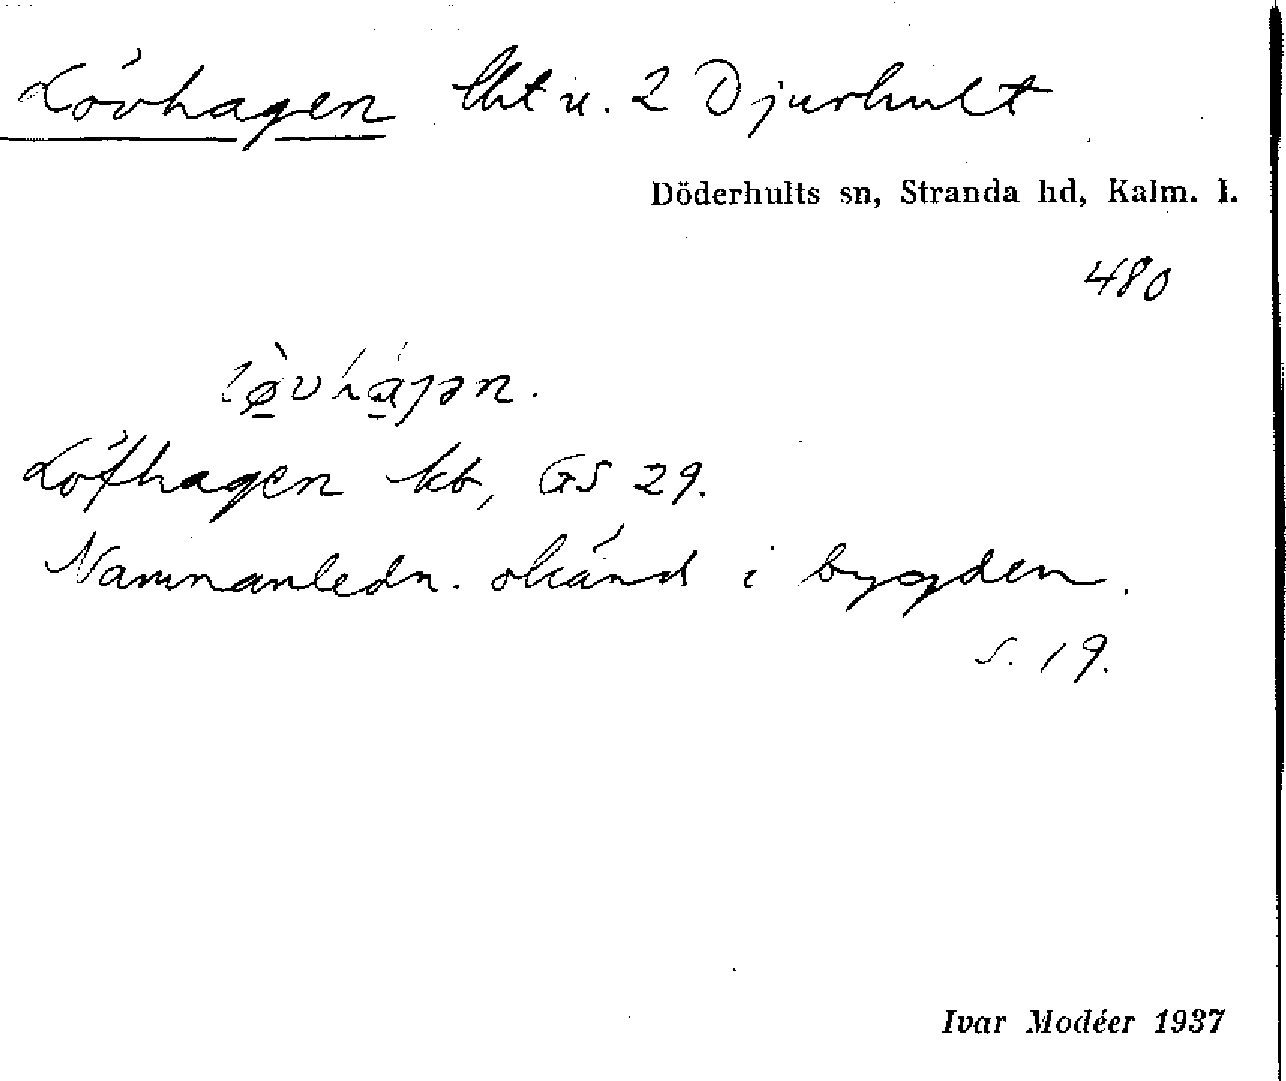 Lövhagen lht u. 2 Djurhult
Döderhults sn, Stranda hd, Kalm. l.
480
Löfhagen kb, GS 29.
Namnanledn. okänd i bygden.
s. 19.
Ivar Modéer 1937